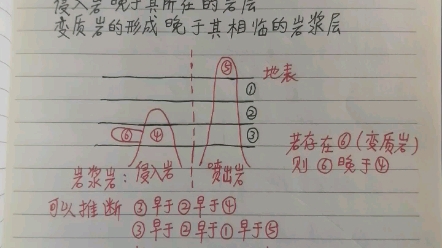 侵入岩晚于其所在的岩层
变质岩的形成晚于其相临的岩浆层
⑤
地表
①
②
⑥ ④ ③
若存在⑥(变质岩)
则⑥晚于④
岩浆岩:侵入岩 喷出岩
可以推断 ③早于②早于④
③早于②早于①早于⑤